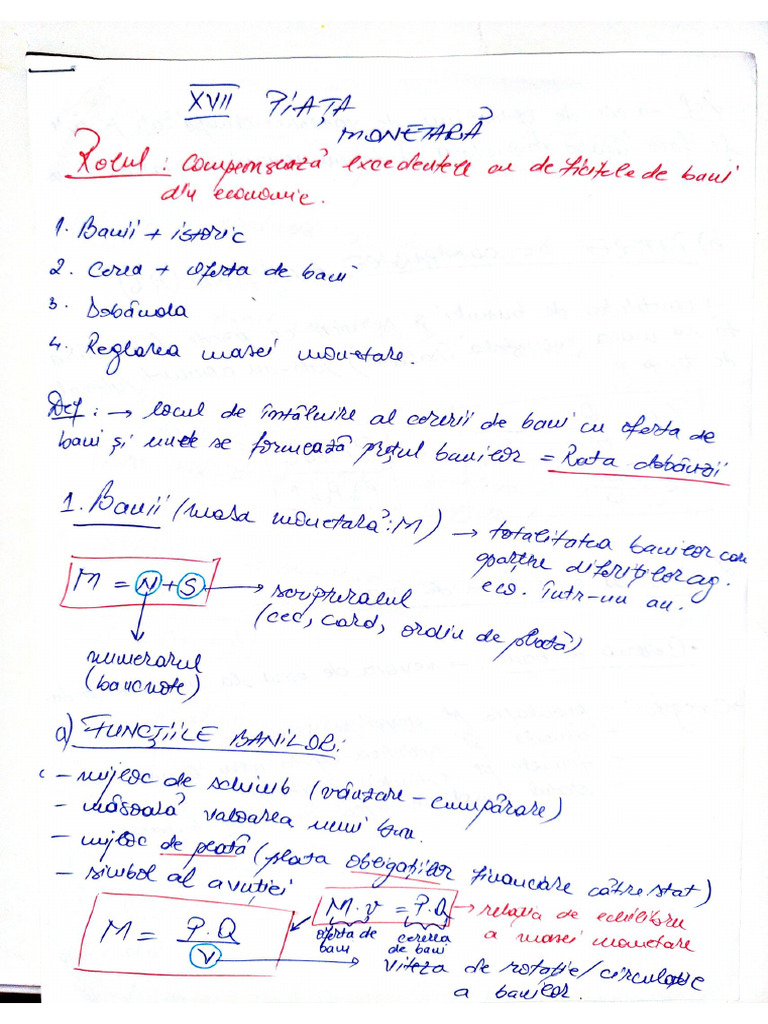 XVII PIAȚA
MONETARĂ
Rolul: compensează excedentele cu deficitele de bani
din economie.
1. Banii + istoric
2. Cerea + oferta de bani
3. Dobânda
4. Reglarea masei monetare.
Def: → locul de întâlnire al cererii de bani cu oferta de
bani și unde se formează prețul banilor = Rata dobânzii
1. Banii (masa monetară: M) → totalitatea banilor care
aparține diferiților ag.
eco. într-un an.
M = N + S → scripturalul
(cec, card, ordin de plată)
numerarul
(bancnote)
a) FUNCȚIILE BANILOR:
- mijloc de schimb (vânzare - cumpărare)
- măsoară valoarea unui bun.
- mijloc de plată (plata obligațiilor financiare către stat)
- simbol al avuției
M · v = P.Q → relația de echilibru
a masei monetare
oferta de bani
cererea de bani
M = P.Q / V
→ viteza de rotație/circulație
a banilor.